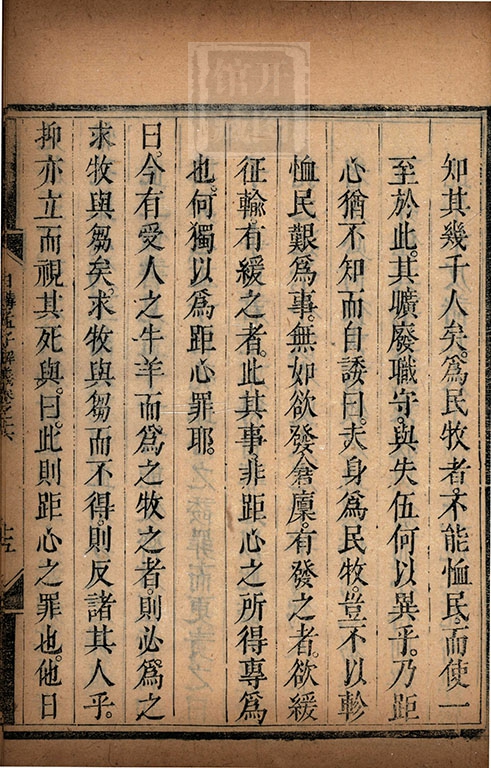 知其幾千人矣。爲民牧者。不能恤民。而使一
至於此。其曠廢職守。與失伍何以異乎。乃距
心猶不知而自諉曰。夫身爲民牧。豈不以軫
恤民艱爲事。無如欲發倉廩。有發之者。欲緩
征輸。有緩之者。此其事。非距心之所得專爲
也。何獨以爲距心罪耶。
曰。今有受人之牛羊而爲之牧之者。則必爲之
求牧與芻矣。求牧與芻而不得。則反諸其人乎。
抑亦立而視其死與。曰。此則距心之罪也。他日
日講孟子解義卷之六